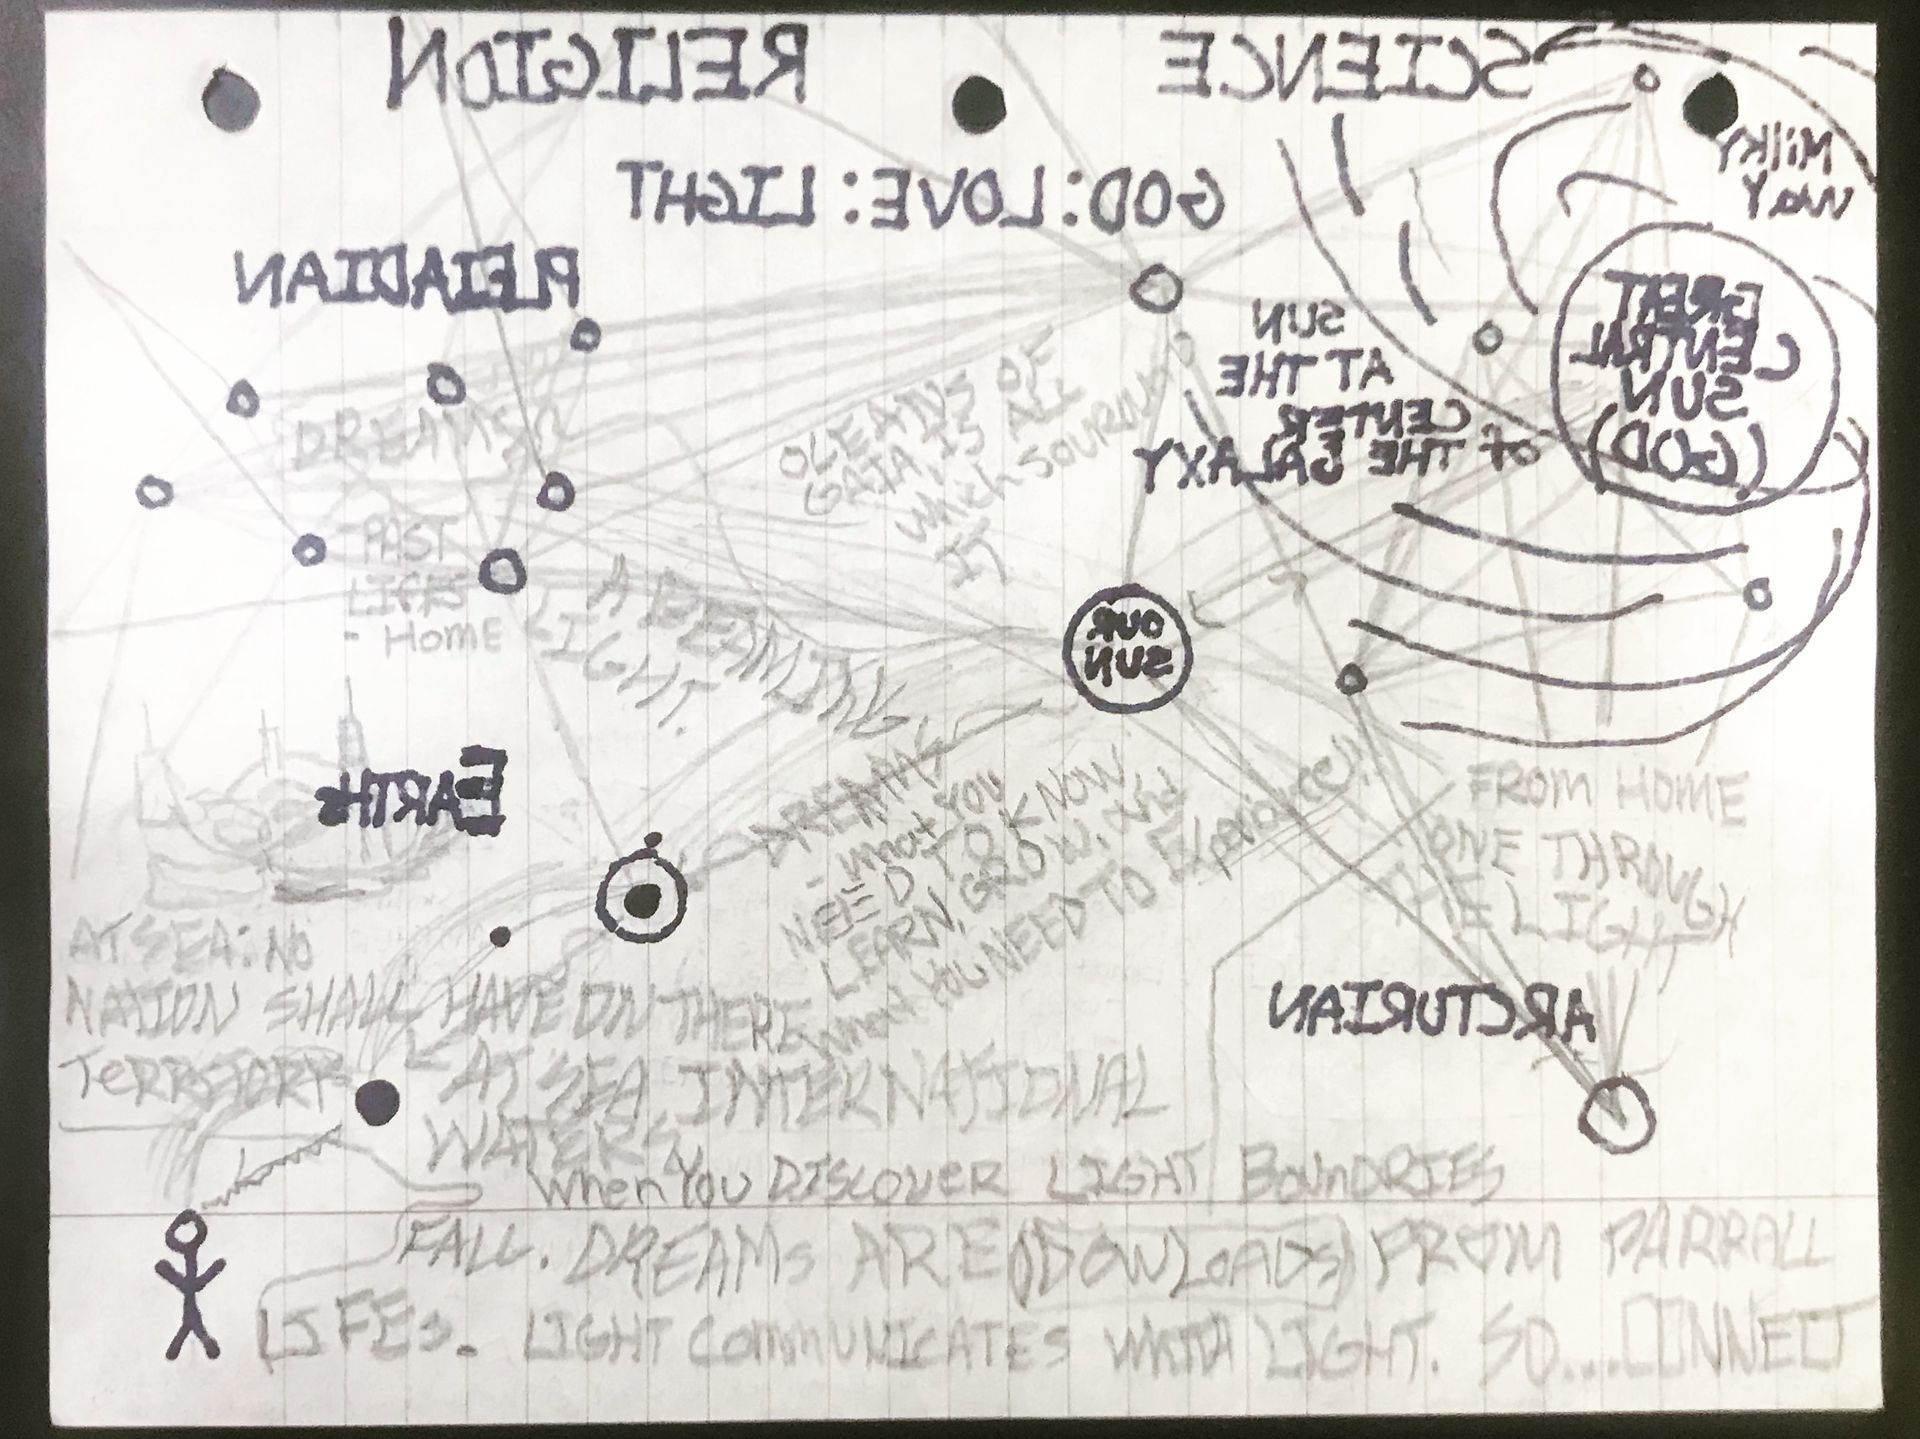 SCIENCE RELIGION
MilkY
WaY
GOD:LOVE:LIGHT
PLEIADIAN
GREAT
CENTRAL
SUN
(GOD)
SUN
AT THE
CENTER
OF THE GALAXY
DREAMS
OCEANS OF
GAIA IS ALL
WhICh SOURCE
IT
- PAST
LIFES
- Home
A BEAMING
LIGHT.
OUR
SUN
EARTHs
DREAMS
- what YOU
NEED TO KNOW
LEARN, GROW, AND
What YOU NEED TO Experience!!
FROM HOME
ONE THROUGH
THE LIGHT
ARCTURIAN
AT SEA: NO
NATION SHALL HAVE ON THERE
TeRRITORY
AT SEA INTERNATIONAL
WATERS
When YOU DISCOVER LIGHT BounDRIES
FALL. DREAMs ARE (DOWLOADS) FROM PARRALL
LIFEs. LIGHT CommUNICATES WITH LIGHT. SO...CONNECT